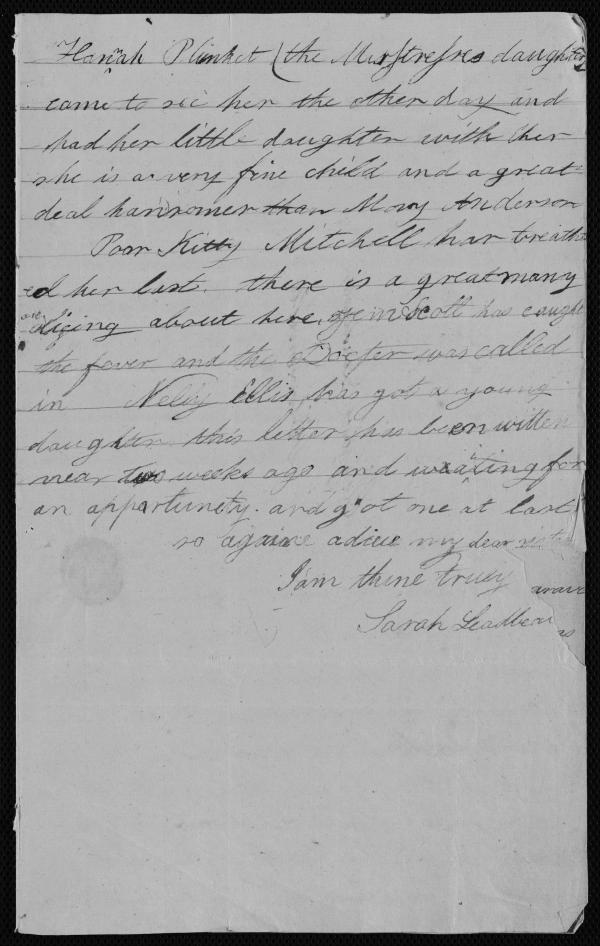 Hannah Plunket (the Misstresses daughter)
came to see her the other day and
had her little daughter with her
she is a very fine child and a great
deal hansomer than Mary Anderson
Poor Kitty Mitchell has breath
ed her last. there is a great many
dieing about here, Jem Scott has caught
the fever and the Docter was called
in Nelly Ellis has got a young
daughter this letter has been witten
near two weeks ago and weating for
an appartunity. and got one at last
so againe adieu my dear
I am thine truly
Sarah Leadbea